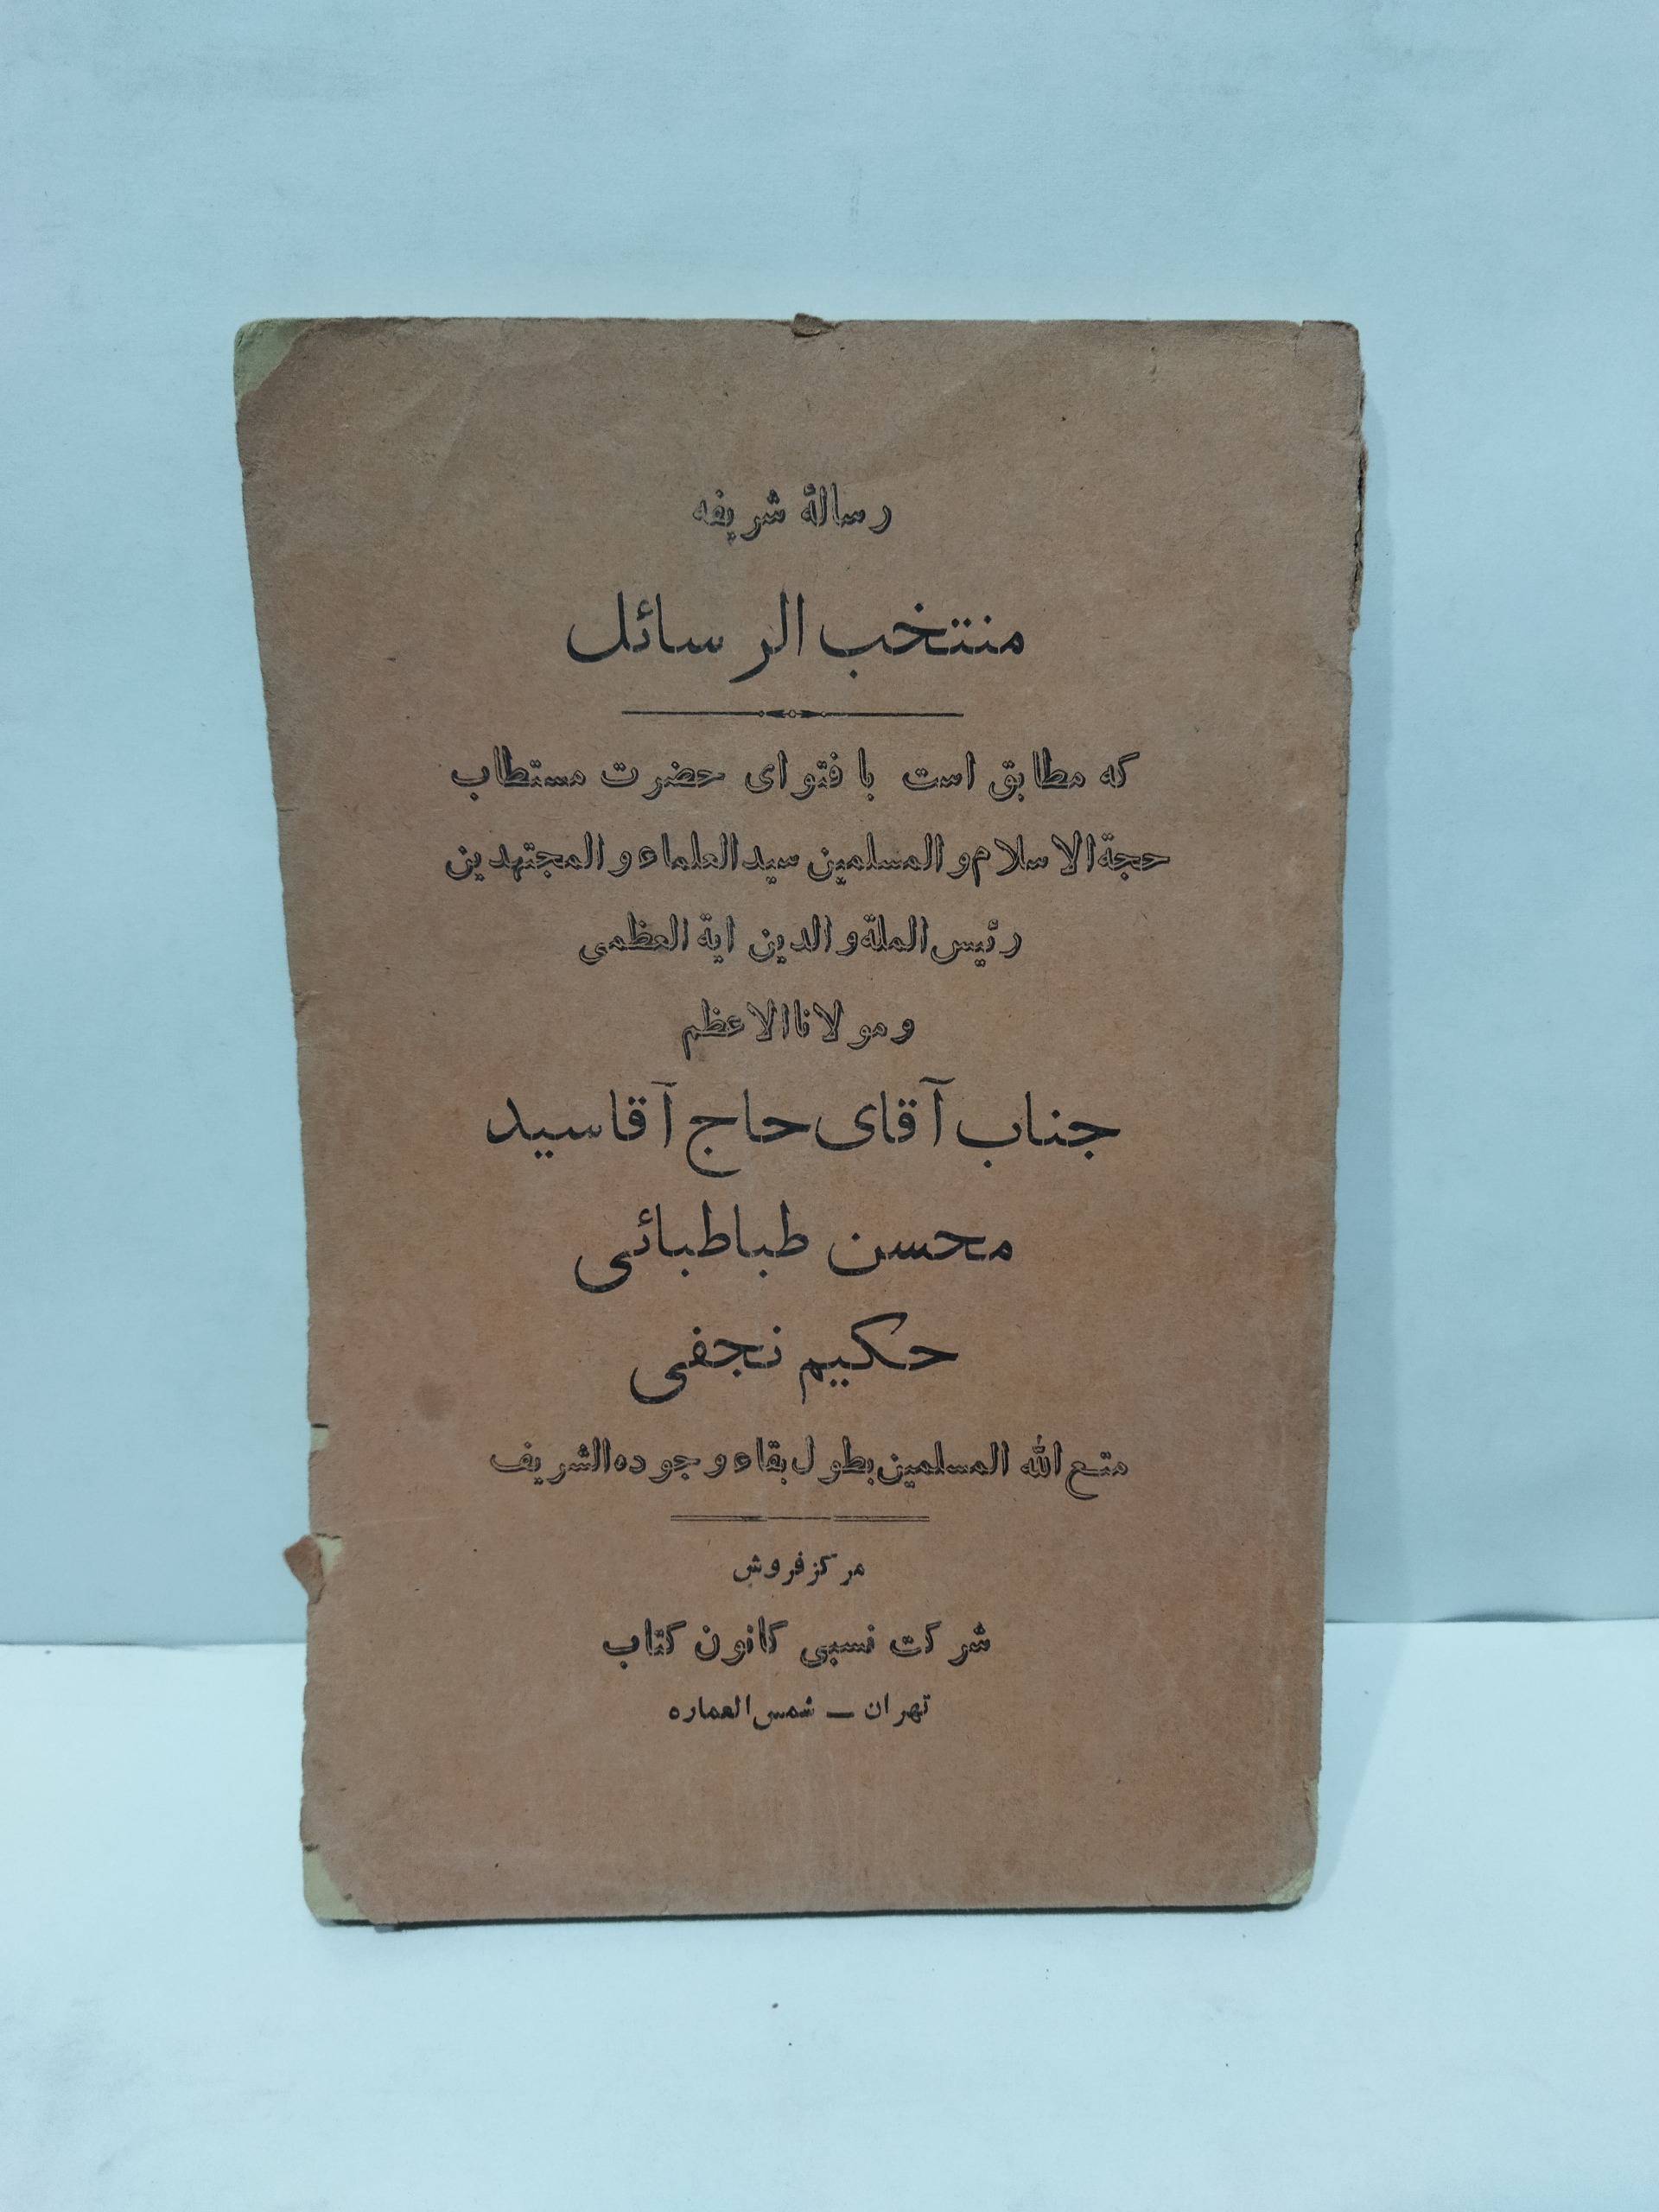 رسالهٔ شریفه
منتخب الرسائل
که مطابق است با فتوای حضرت مستطاب
حجة الاسلام و المسلمین سید العلماء و المجتهدین
رئیس الملة و الدین ایة العظمی
و مولانا الاعظم
جناب آقای حاج آقا سید
محسن طباطبائی
حکیم نجفی
متع الله المسلمین بطول بقاء وجوده الشریف
مرکز فروش
شرکت نسبی کانون کتاب
تهران — شمس العماره